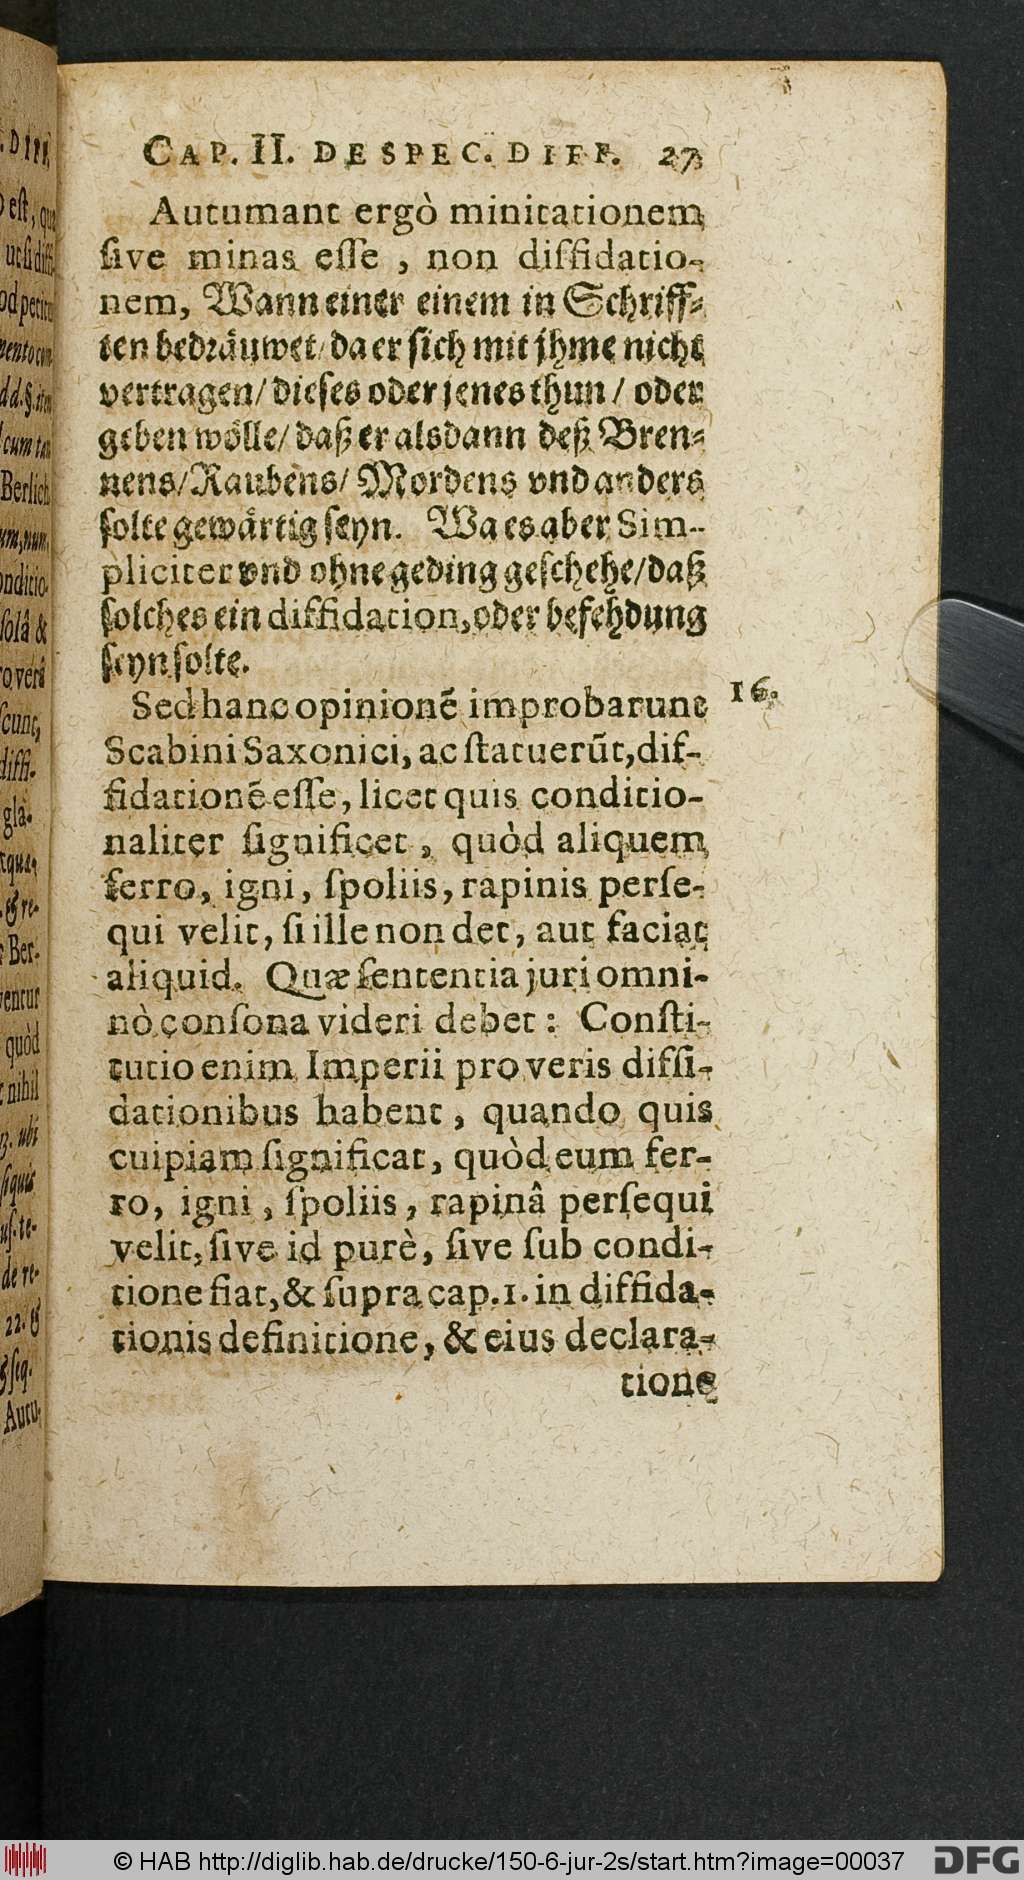 CAP. II. DE SPEC. DIFF. 27
Autumant ergò minitationem
ſive minas eſſe, non diffidatio-
nem, Wann einer einem in Schriff-
ten bedräuwet/ da er ſich mit jhme nicht
vertragen/ dieſes oder jenes thun/ oder
geben wölle/ daß er alsdann deß Bren-
nens/ Raubens/ Mordens vnd anders
ſolte gewärtig ſeyn. Wa es aber Sim-
pliciter vnd ohne geding geſchehe/ daß
ſolches ein diffidation, oder befehdung
ſeyn ſolte.
Sed hanc opinionẽ improbarunt
16.
Scabini Saxonici, ac ſtatuerũt, dif-
fidationẽ eſſe, licet quis conditio-
naliter ſignificet, quòd aliquem
ferro, igni, ſpoliis, rapinis perſe-
qui velit, ſi ille non det, aut faciat
aliquid. Quæ ſententia juri omni-
nò conſona videri debet: Conſti-
tutio enim Imperii pro veris diffi-
dationibus habent, quando quis
cuipiam ſignificat, quòd eum fer-
ro, igni, ſpoliis, rapinâ perſequi
velit, ſive id purè, ſive ſub condi-
tione fiat, & ſupra cap. 1. in diffida-
tionis definitione, & eius declara-
tione
© HAB http://diglib.hab.de/drucke/150-6-jur-2s/start.htm?image=00037
DFG